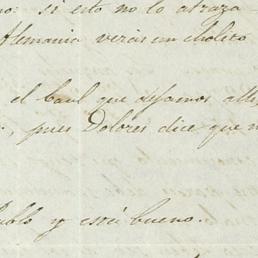 no: si esto no lo atraza
Alemania verás un choleto
el baul que dejamos alli
, pues Dolores dice que n
ablo y está bueno.